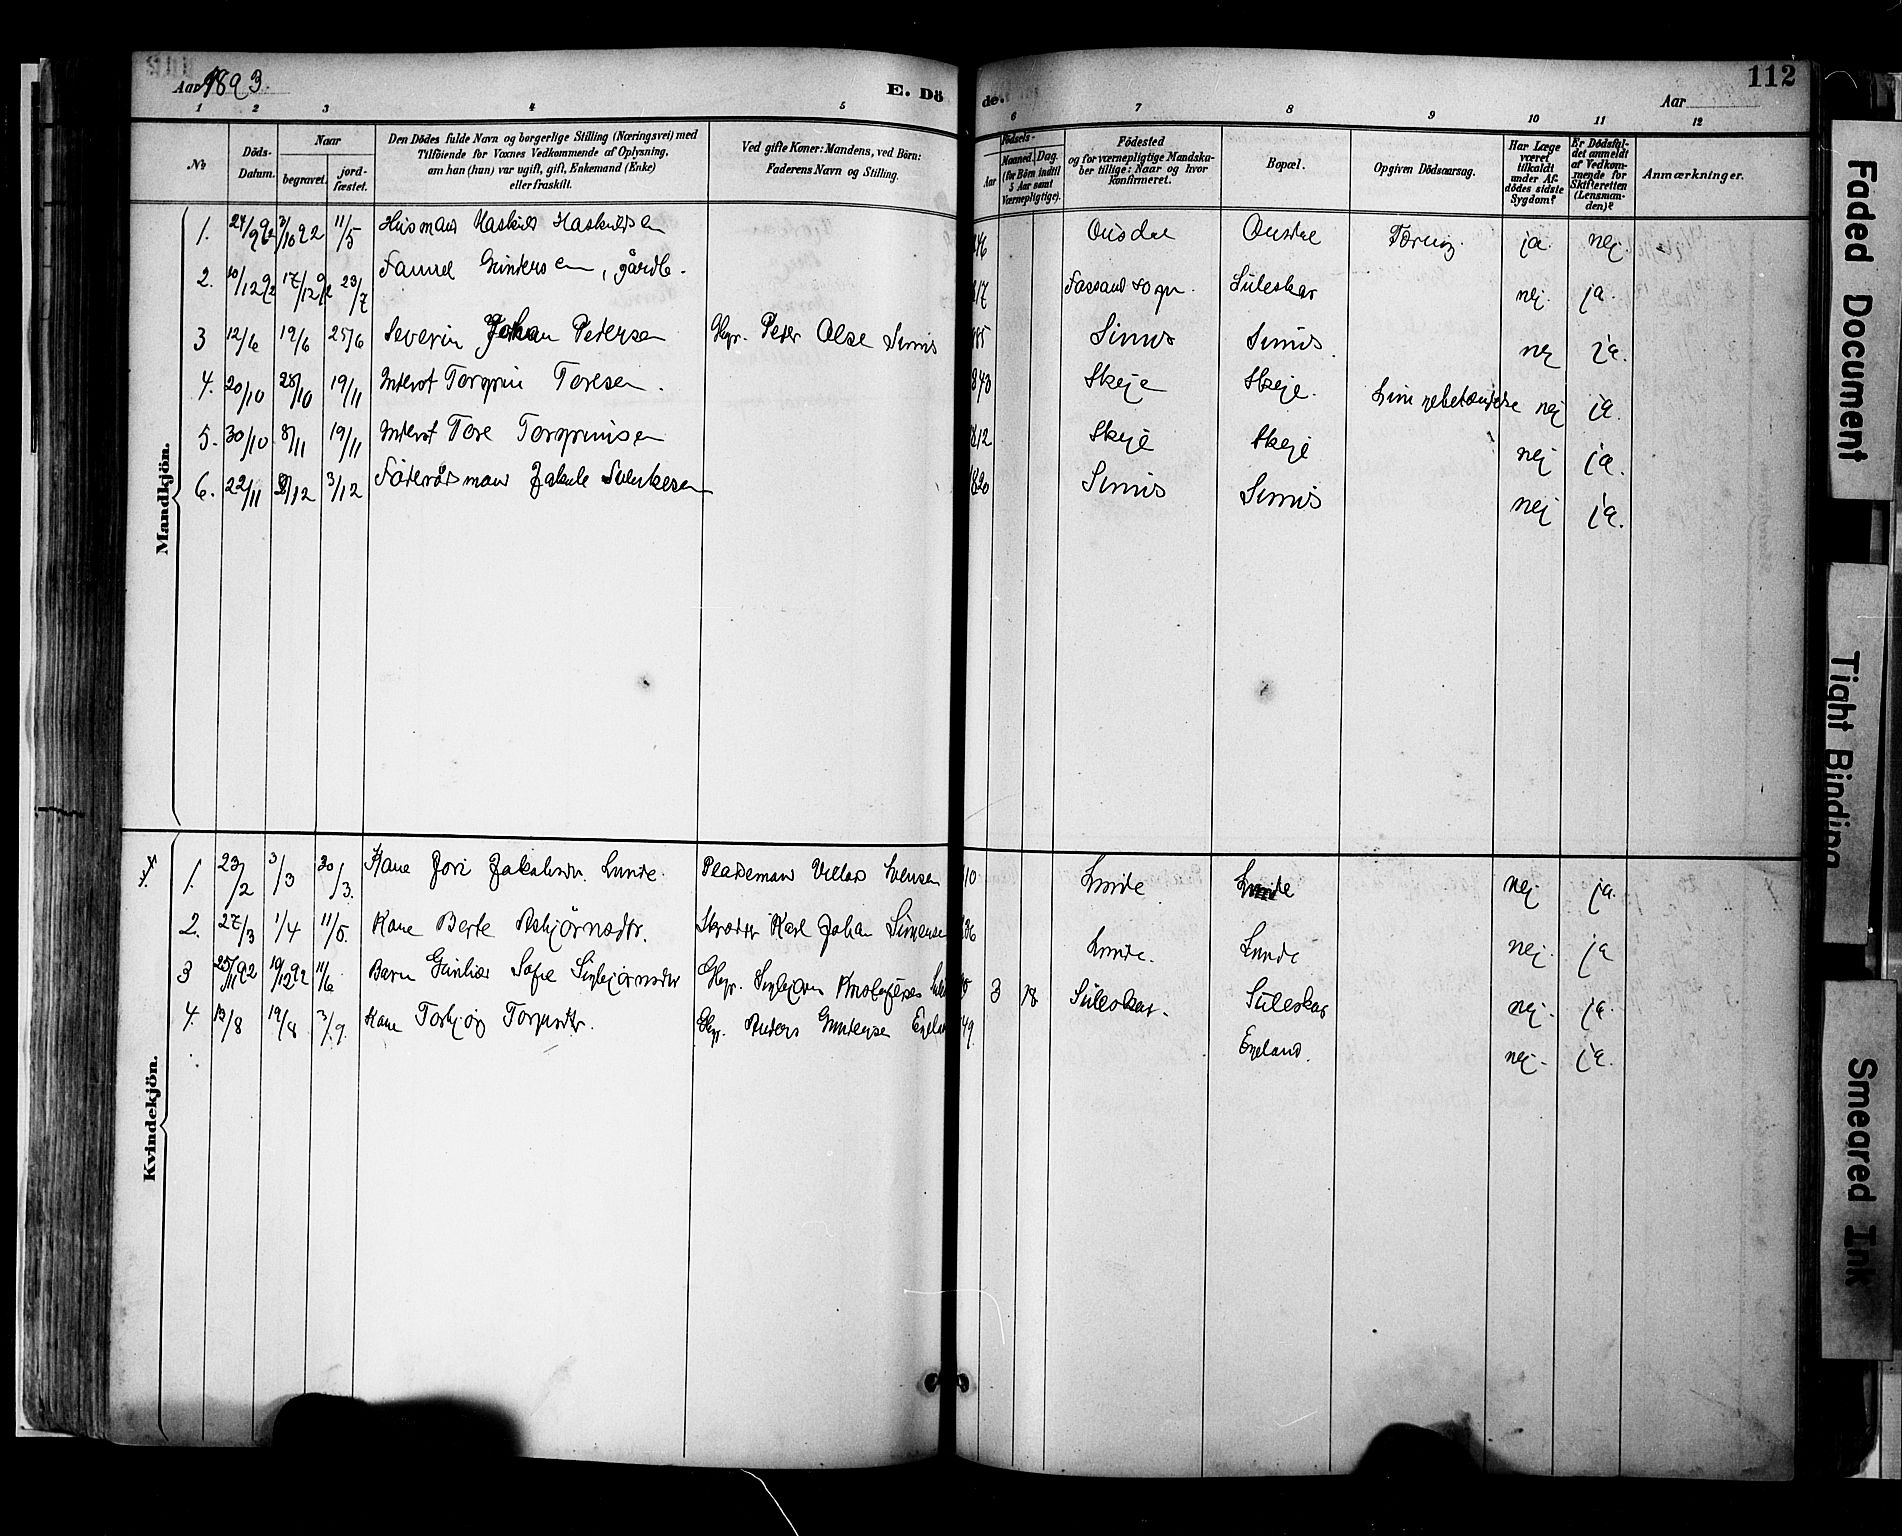 112
Aar 1893.
E. Dö
de.
Aar
1 2 3 4 5 6 7 8 9 10 11 12
No
Döds-
Datum.
Naar
begravet.
jord-
fæstet.
Den Dödes fulde Navn og borgerlige Stilling (Næringsvei) med
Tilföiende for Voxnes Vedkommende af Oplysning,
om han (hun) var ugift, gift, Enkemand (Enke)
eller fraskilt.
Ved gifte Koner: Mandens, ved Börn:
Faderens Navn og Stilling.
Födsels-
Aar
Maaned. Dag.
(for Börn indtil
5 Aar samt
Værnepligtige).
Födested
og for værnepligtige Mandska-
ber tillige: Naar og hvor
konfirmeret.
Bopæl.
Opgiven Dödsaarsag.
Har Læge
været
tilkaldt
under Af-
dödes sidste
Sygdom?
Er Dödsfal-
det anmeldt
af Vedkom-
mende for
Skifteretten
(Lensman-
den)?
Anmærkninger.
Mandkjön.
1. 27/9 92 3/10 92 11/5 Husmand 46 Ousdal Ousdal Tæring. ja nej
2. 10/12 92 17/12 92 23/7 Samuel Gunderson, gårdb. 17 sogn. Suleskar nej. ja.
3 12/6 19/6 25/6 Severin Johan Petersen Gbr. Peder Olse Sinnis 85 Sinnis Sinnis. nej ja.
4. 20/10 28/10 19/11 Inderst Torgrim Toresen. 843 Skeje Skeje. nej ja.
5. 30/10 8/11 19/11 Inderst Tore Torgrimsen 1812 Skeje Skeje nej ja.
6. 22/11 /12 3/12 Föderådsmand Jakob 1820 Sinnis Sinnis nej ja.
Kvindekjön.
1. 23/2 3/3 30/3. Kone Jori Jakobsdr. Lunde. Pladsmand 10 Lunde Lunde nej ja.
2. 27/3 1/4 11/5. Kone Berte Asbjörnsdtr. Skrædder Karl Johan Simensen 36 Lunde. Lunde nej. ja
3 25/11 92 19/12 92 11/6 Barn Sofie Sigbjörnsdtr Gbr. Sigbjörn 3 18 Suleskar. Suleskar nej. ja.
4. 13/8 19/8 3/9. Kone Torbjør Gbr. Anders Gundersen 49. Egeland. nej. ja.
Faded Document
Tight Binding
Smeared Ink